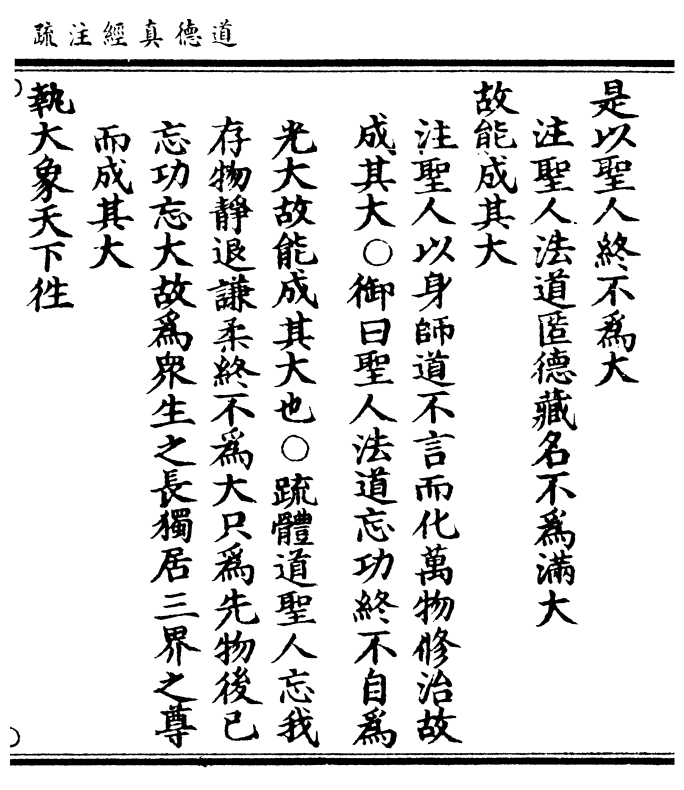 道德真經注疏
是以聖人終不爲大
注聖人法道匿德藏名不爲滿大
故能成其大
注聖人以身師道不言而化萬物修治故
成其大○御曰聖人法道忘功終不自爲
光大故能成其大也○疏體道聖人忘我
存物靜退謙柔終不爲大只爲先物後已
忘功忘大故爲衆生之長獨居三界之尊
而成其大
執大象天下徃